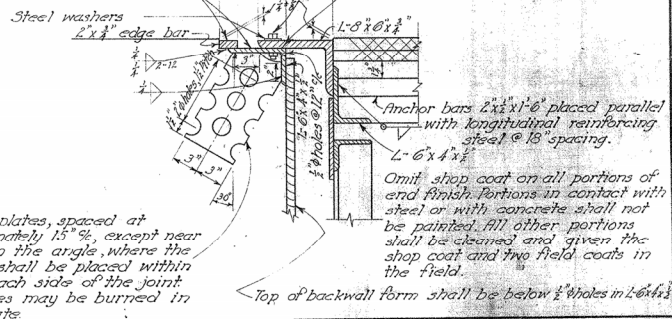 Steel washers
2"x 3/4" edge bar
L-8"x6"x 3/4"
1/4
1/4
2-12
1/4
3"
2"
1 1/2"
L-6"x4"x 1/2"
1/2"φ holes @ 12" %
Anchor bars 2"x 1/2"x1'-6" placed parallel
with longitudinal reinforcing
steel @ 18" spacing.
L-6"x4"x 1/2"
3"
3"
30°
Omit shop coat on all portions of
end finish. Portions in contact with
steel or with concrete shall not
be painted. All other portions
shall be cleaned and given the
shop coat and two field coats in
the field.
plates, spaced at
15" %, except near
the angle, where the
shall be placed within
each side of the joint.
may be burned in
Top of backwall form shall be below 1/2"φ holes in L-6"x4"x 1/2"